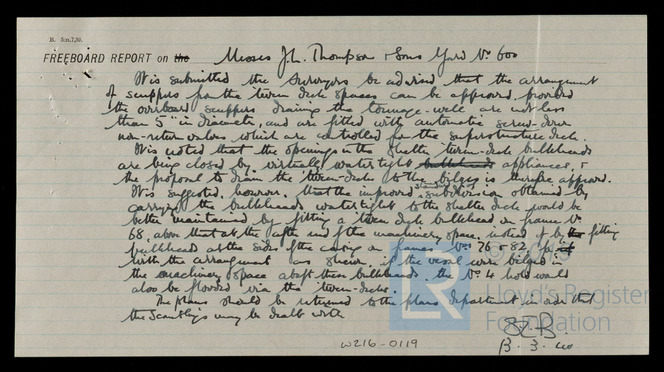 FREEBOARD REPORT on the Messrs J.L. Thompson & Sons Yard No 600
It is submitted the Surveyors be advised that the arrangement
of scuppers for the tween deck spaces can be approved provided
the overboard scuppers draining the tonnage well are not less
than 5" in diameter, and are fitted with automatic screw-down
non-return valves which are controlled from the superstructure deck.
It is noted that the openings in the shelter tween-deck bulkheads
are being closed by virtually watertight bulkheads appliances, &
the proposal to drain the tween-deck to the bilges is therefore approved.
It is suggested, however, that the improved subdivision obtained by
carrying the bulkheads watertight to the shelter deck would be
better maintained by fitting a tween deck bulkhead on frame No
68, above that at the after end of the machinery space, instead of by the fitting
bulkhead at the sides of the casing on frames Nos 76 & 82, for
with the arrangement as shewn, if the vessel were bilged in
the machinery space abaft these bulkheads the No 4 hold would
also be flooded via the tween-decks.
The plans should be returned to the plans department in order that
the scantlings may be dealt with
8.3.40
W216-0119
LR
Lloyd's Register
Foundation